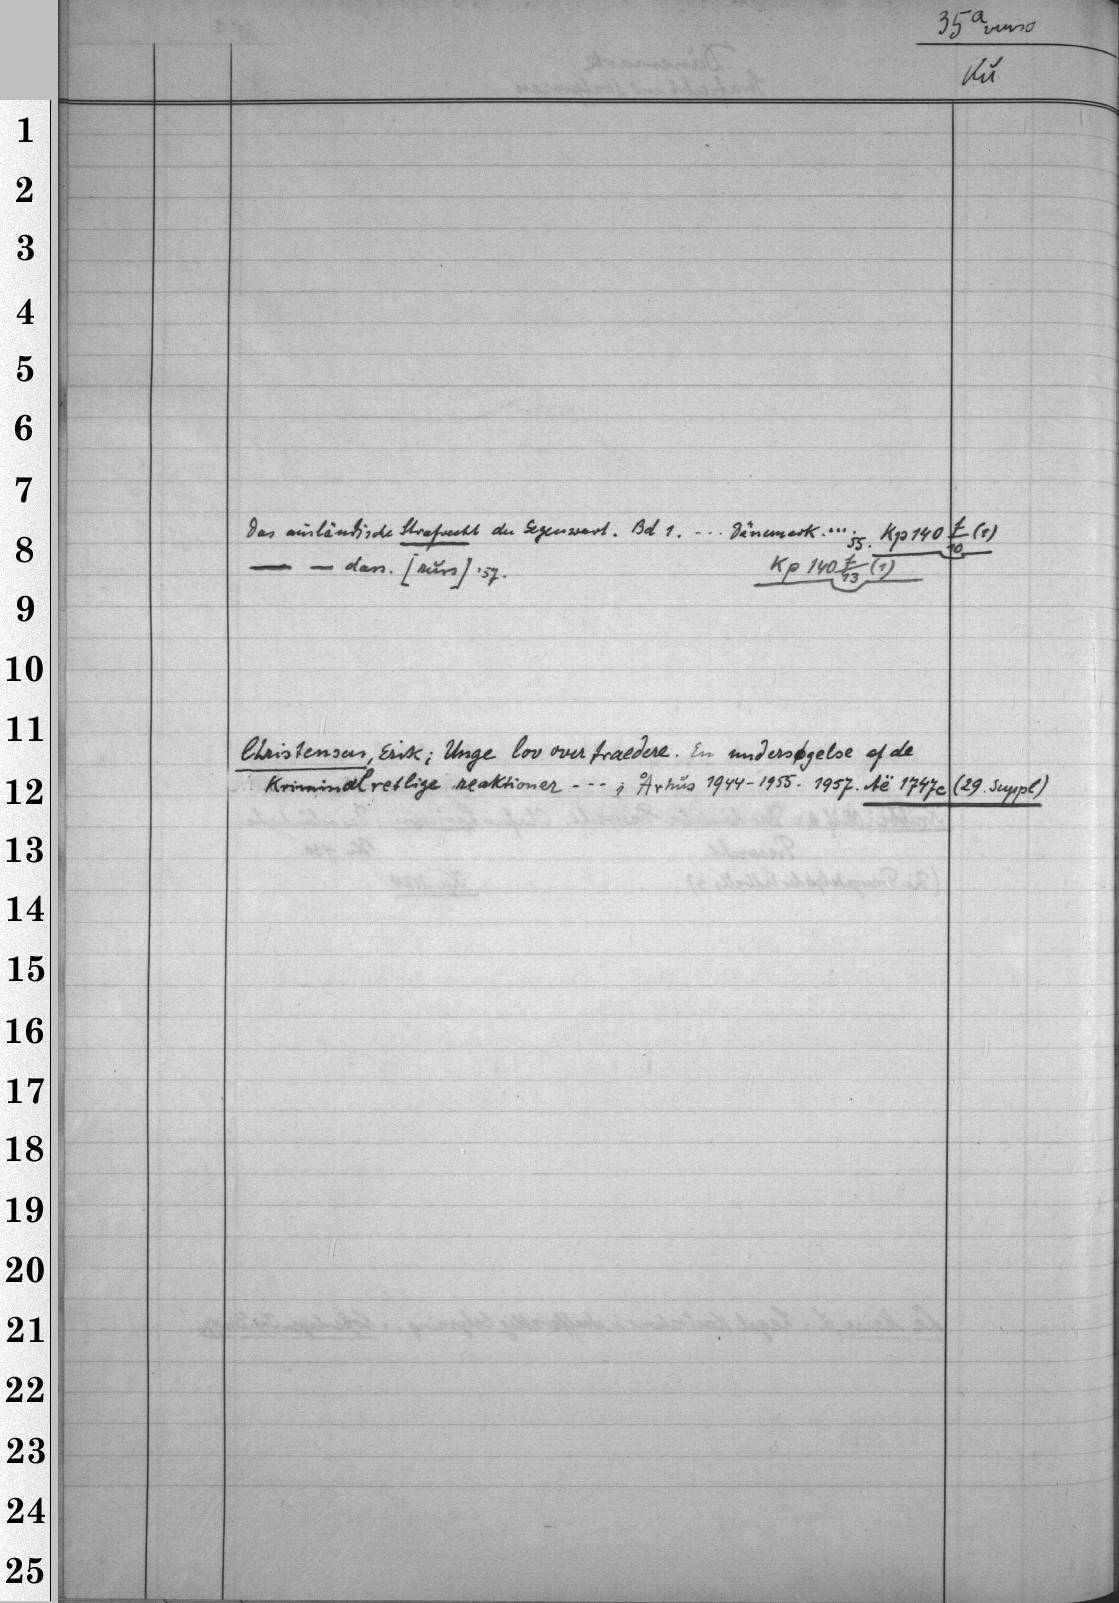 35a verso
Kŭ
1
2
3
4
5
6
7
Das ausländische Strafrecht der Gegenwart. Bd 1. --- Dänemark. ... 55. Kp 140 f/10 (1)
8
— — dass. [rŭss] '57. Kp 140 f/13 (1)
9
10
11
Christensen, Erik; Unge lov overtraedere. En undersøgelse af de
Kriminalretlige reaktioner --- i Århŭs 1944-1955. 1957. Aë 1747c (29. Suppl)
12
13
14
15
16
17
18
19
20
21
22
23
24
25